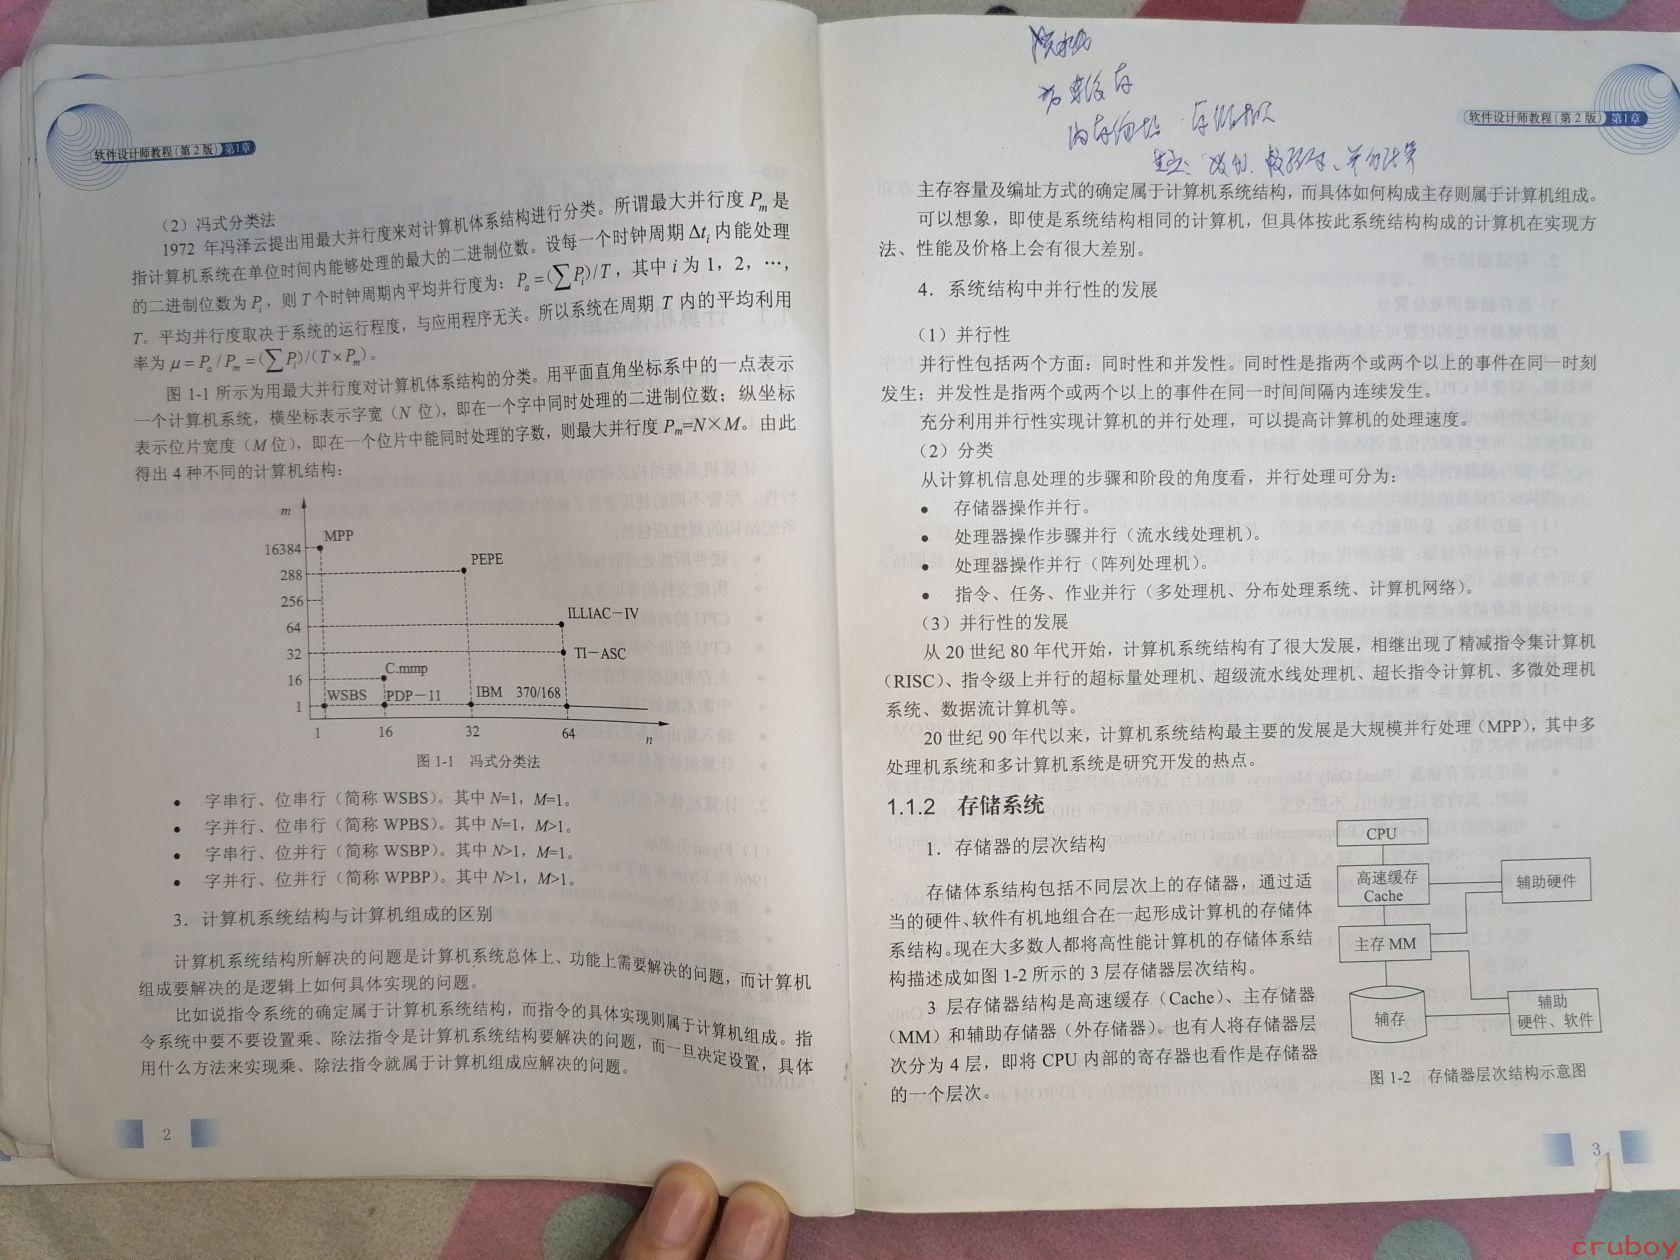 软件设计师教程（第2版）第1章
（2）冯式分类法
1972 年冯泽云提出用最大并行度来对计算机体系结构进行分类。所谓最大并行度 Pm 是
指计算机系统在单位时间内能够处理的最大的二进制位数。设每一个时钟周期 Δti 内能处理
的二进制位数为 Pi，则 T 个时钟周期内平均并行度为：Pa =(∑Pi)/T，其中 i 为 1，2，…，
T。平均并行度取决于系统的运行程度，与应用程序无关。所以系统在周期 T 内的平均利用
率为 μ = Pa / Pm = (∑Pi)/(T×Pm)。
图 1-1 所示为用最大并行度对计算机体系结构的分类。用平面直角坐标系中的一点表示
一个计算机系统，横坐标表示字宽（N 位），即在一个字中同时处理的二进制位数；纵坐标
表示位片宽度（M 位），即在一个位片中能同时处理的字数，则最大并行度 Pm=N×M。由此
得出 4 种不同的计算机结构：
m
16384 MPP
288 PEPE
256
64 ILLIAC－IV
32 TI－ASC
16 C.mmp
1 WSBS PDP－11 IBM 370/168
1 16 32 64 n
图 1-1 冯式分类法
• 字串行、位串行（简称 WSBS）。其中 N=1，M=1。
• 字并行、位串行（简称 WPBS）。其中 N=1，M>1。
• 字串行、位并行（简称 WSBP）。其中 N>1，M=1。
• 字并行、位并行（简称 WPBP）。其中 N>1，M>1。
3．计算机系统结构与计算机组成的区别
计算机系统结构所解决的问题是计算机系统总体上、功能上需要解决的问题，而计算机
组成要解决的是逻辑上如何具体实现的问题。
比如说指令系统的确定属于计算机系统结构，而指令的具体实现则属于计算机组成。指
令系统中要不要设置乘、除法指令是计算机系统结构要解决的问题，而一旦决定设置，具体
用什么方法来实现乘、除法指令就属于计算机组成应解决的问题。
2
软件设计师教程（第2版）第1章
主存容量及编址方式的确定属于计算机系统结构，而具体如何构成主存则属于计算机组成。
可以想象，即使是系统结构相同的计算机，但具体按此系统结构构成的计算机在实现方
法、性能及价格上会有很大差别。
4．系统结构中并行性的发展
（1）并行性
并行性包括两个方面：同时性和并发性。同时性是指两个或两个以上的事件在同一时刻
发生；并发性是指两个或两个以上的事件在同一时间间隔内连续发生。
充分利用并行性实现计算机的并行处理，可以提高计算机的处理速度。
（2）分类
从计算机信息处理的步骤和阶段的角度看，并行处理可分为：
• 存储器操作并行。
• 处理器操作步骤并行（流水线处理机）。
• 处理器操作并行（阵列处理机）。
• 指令、任务、作业并行（多处理机、分布处理系统、计算机网络）。
（3）并行性的发展
从 20 世纪 80 年代开始，计算机系统结构有了很大发展，相继出现了精减指令集计算机
（RISC）、指令级上并行的超标量处理机、超级流水线处理机、超长指令计算机、多微处理机
系统、数据流计算机等。
20 世纪 90 年代以来，计算机系统结构最主要的发展是大规模并行处理（MPP），其中多
处理机系统和多计算机系统是研究开发的热点。
1.1.2 存储系统
1．存储器的层次结构
存储体系结构包括不同层次上的存储器，通过适
当的硬件、软件有机地组合在一起形成计算机的存储体
系结构。现在大多数人都将高性能计算机的存储体系结
构描述成如图 1-2 所示的 3 层存储器层次结构。
3 层存储器结构是高速缓存（Cache）、主存储器
（MM）和辅助存储器（外存储器）。也有人将存储器层
次分为 4 层，即将 CPU 内部的寄存器也看作是存储器
的一个层次。
CPU
高速缓存
Cache
辅助硬件
主存 MM
辅存
辅助
硬件、软件
图 1-2 存储器层次结构示意图
3
cruboy